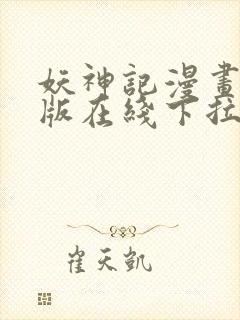 妖神記漫畫
版在綫下拉
崔天凱